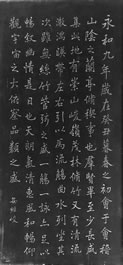 永和九年歲在癸丑暮春之初會于會稽
山陰之蘭亭脩禊事也羣賢畢至少長咸
集此地有崇山峻嶺茂林脩竹又有清流
激湍暎帶左右引以爲流觴曲水列坐其
次雖無絲竹管弦之盛一觴一詠亦足以
暢叙幽情是日也天朗氣清惠風和暢仰
觀宇宙之大俯察品類之盛